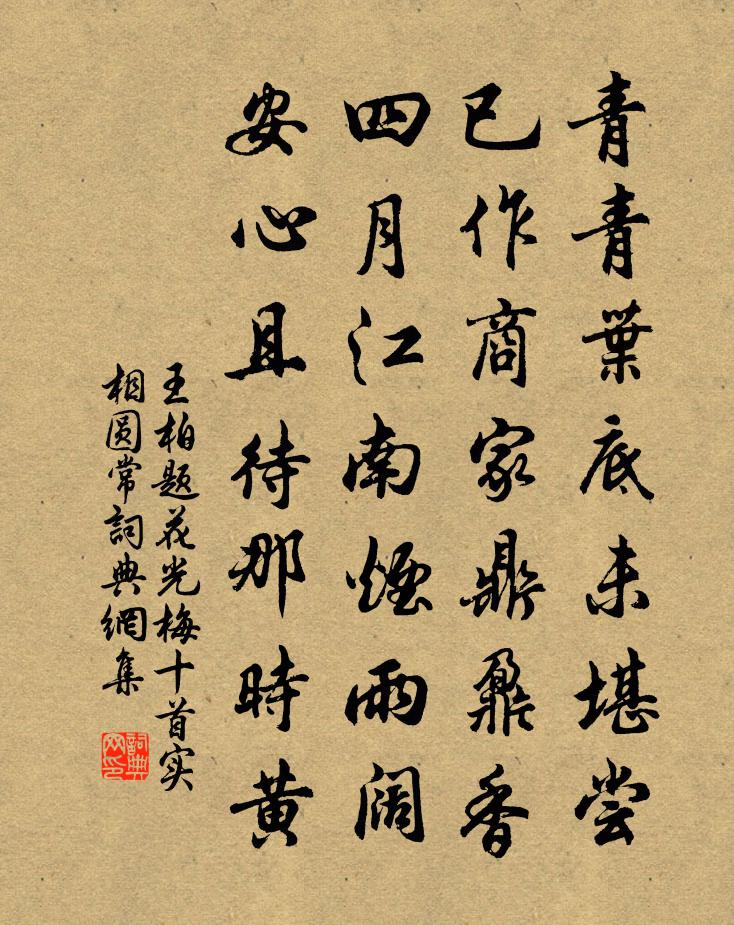 青青葉底未堪尝
已作商家鼎鼐香
四月江南煙雨阔
安心且待那時黄
王柏题花光梅十首实
相圆常詞典網集
詞典
网印